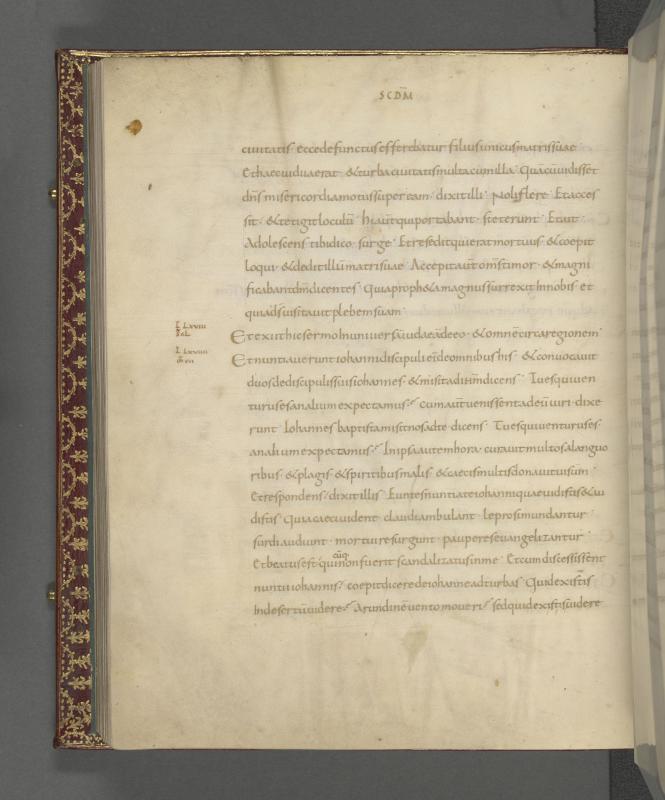 SCDM̄
ciuitatis · ecce defunctus efferebatur filius unicus matris suae
Et haec uidua erat · & turba ciuitatis multa cum illa · Quā cum uidisset
dn̄s misericordia motus super eam · dixit illi · Noli flere · Et acces
sit · & tetigit loculū · hi aut̄ qui portabant · steterunt · Et ait ·
Adolescens tibi dico · surge · Et resedit qui erat mortuus · & coepit
loqui · & dedit illū matri suae · Accepit aut̄ om̄s timor · & magni
ficabant dm̄ dicentes · Quia proph&a magnus surrexit In nobis · et
quia ds̄ uisitauit plebem suam ·
Et exiit hic sermo In uniuersā iudaeā de eo · & omnē circa regionem ·
Et nuntiauerunt iohanni discipuli ei de omnibus his · & conuocauit
duos de discipulis suis iohannes · & misit ad ih̄m dicens · Tu es qui uen
turus es an alium expectamus · cum aut̄ uenissent ad eū uiri · dixe
runt · Iohannes baptista misit nos ad te · dicens · Tu es qui uenturus es ·
an alium expectamus · In ipsa autem hora · curauit multos a languo
ribus · & plagis · & spiritibus malis · & caecis multis donauit uisum ·
Et respondens · dixit illis · Euntes nuntiate iohanni quae uidistis & au
distis · Quia caeci uident · claudi ambulant · leprosi mundantur ·
surdi audiunt · mortui resurgunt · pauperes euangelizantur ·
Et beatus est · qui cūq; non fuerit scandalizatus in me · Et cum discessissent
nuntii iohannis · coepit dicere de iohanne ad turbas · Quid existis
In desertū uidere · Arundinē uento moueri · sed quid existis uidere